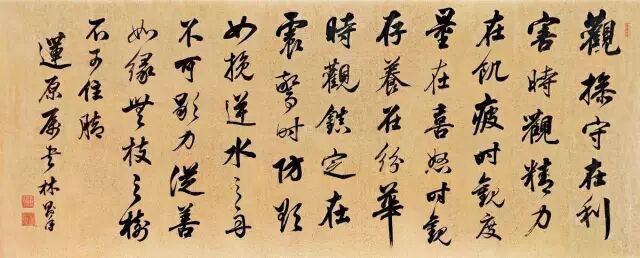 觀操守在利
害時觀精力
在飢疲时觀度
量在喜怒时觀
存養在紛華
時觀鎮定在
震驚时防欲
如挽逆水之舟
不可歇力從善
如緣無枝之樹
不可住腳
蓮原属书林則徐